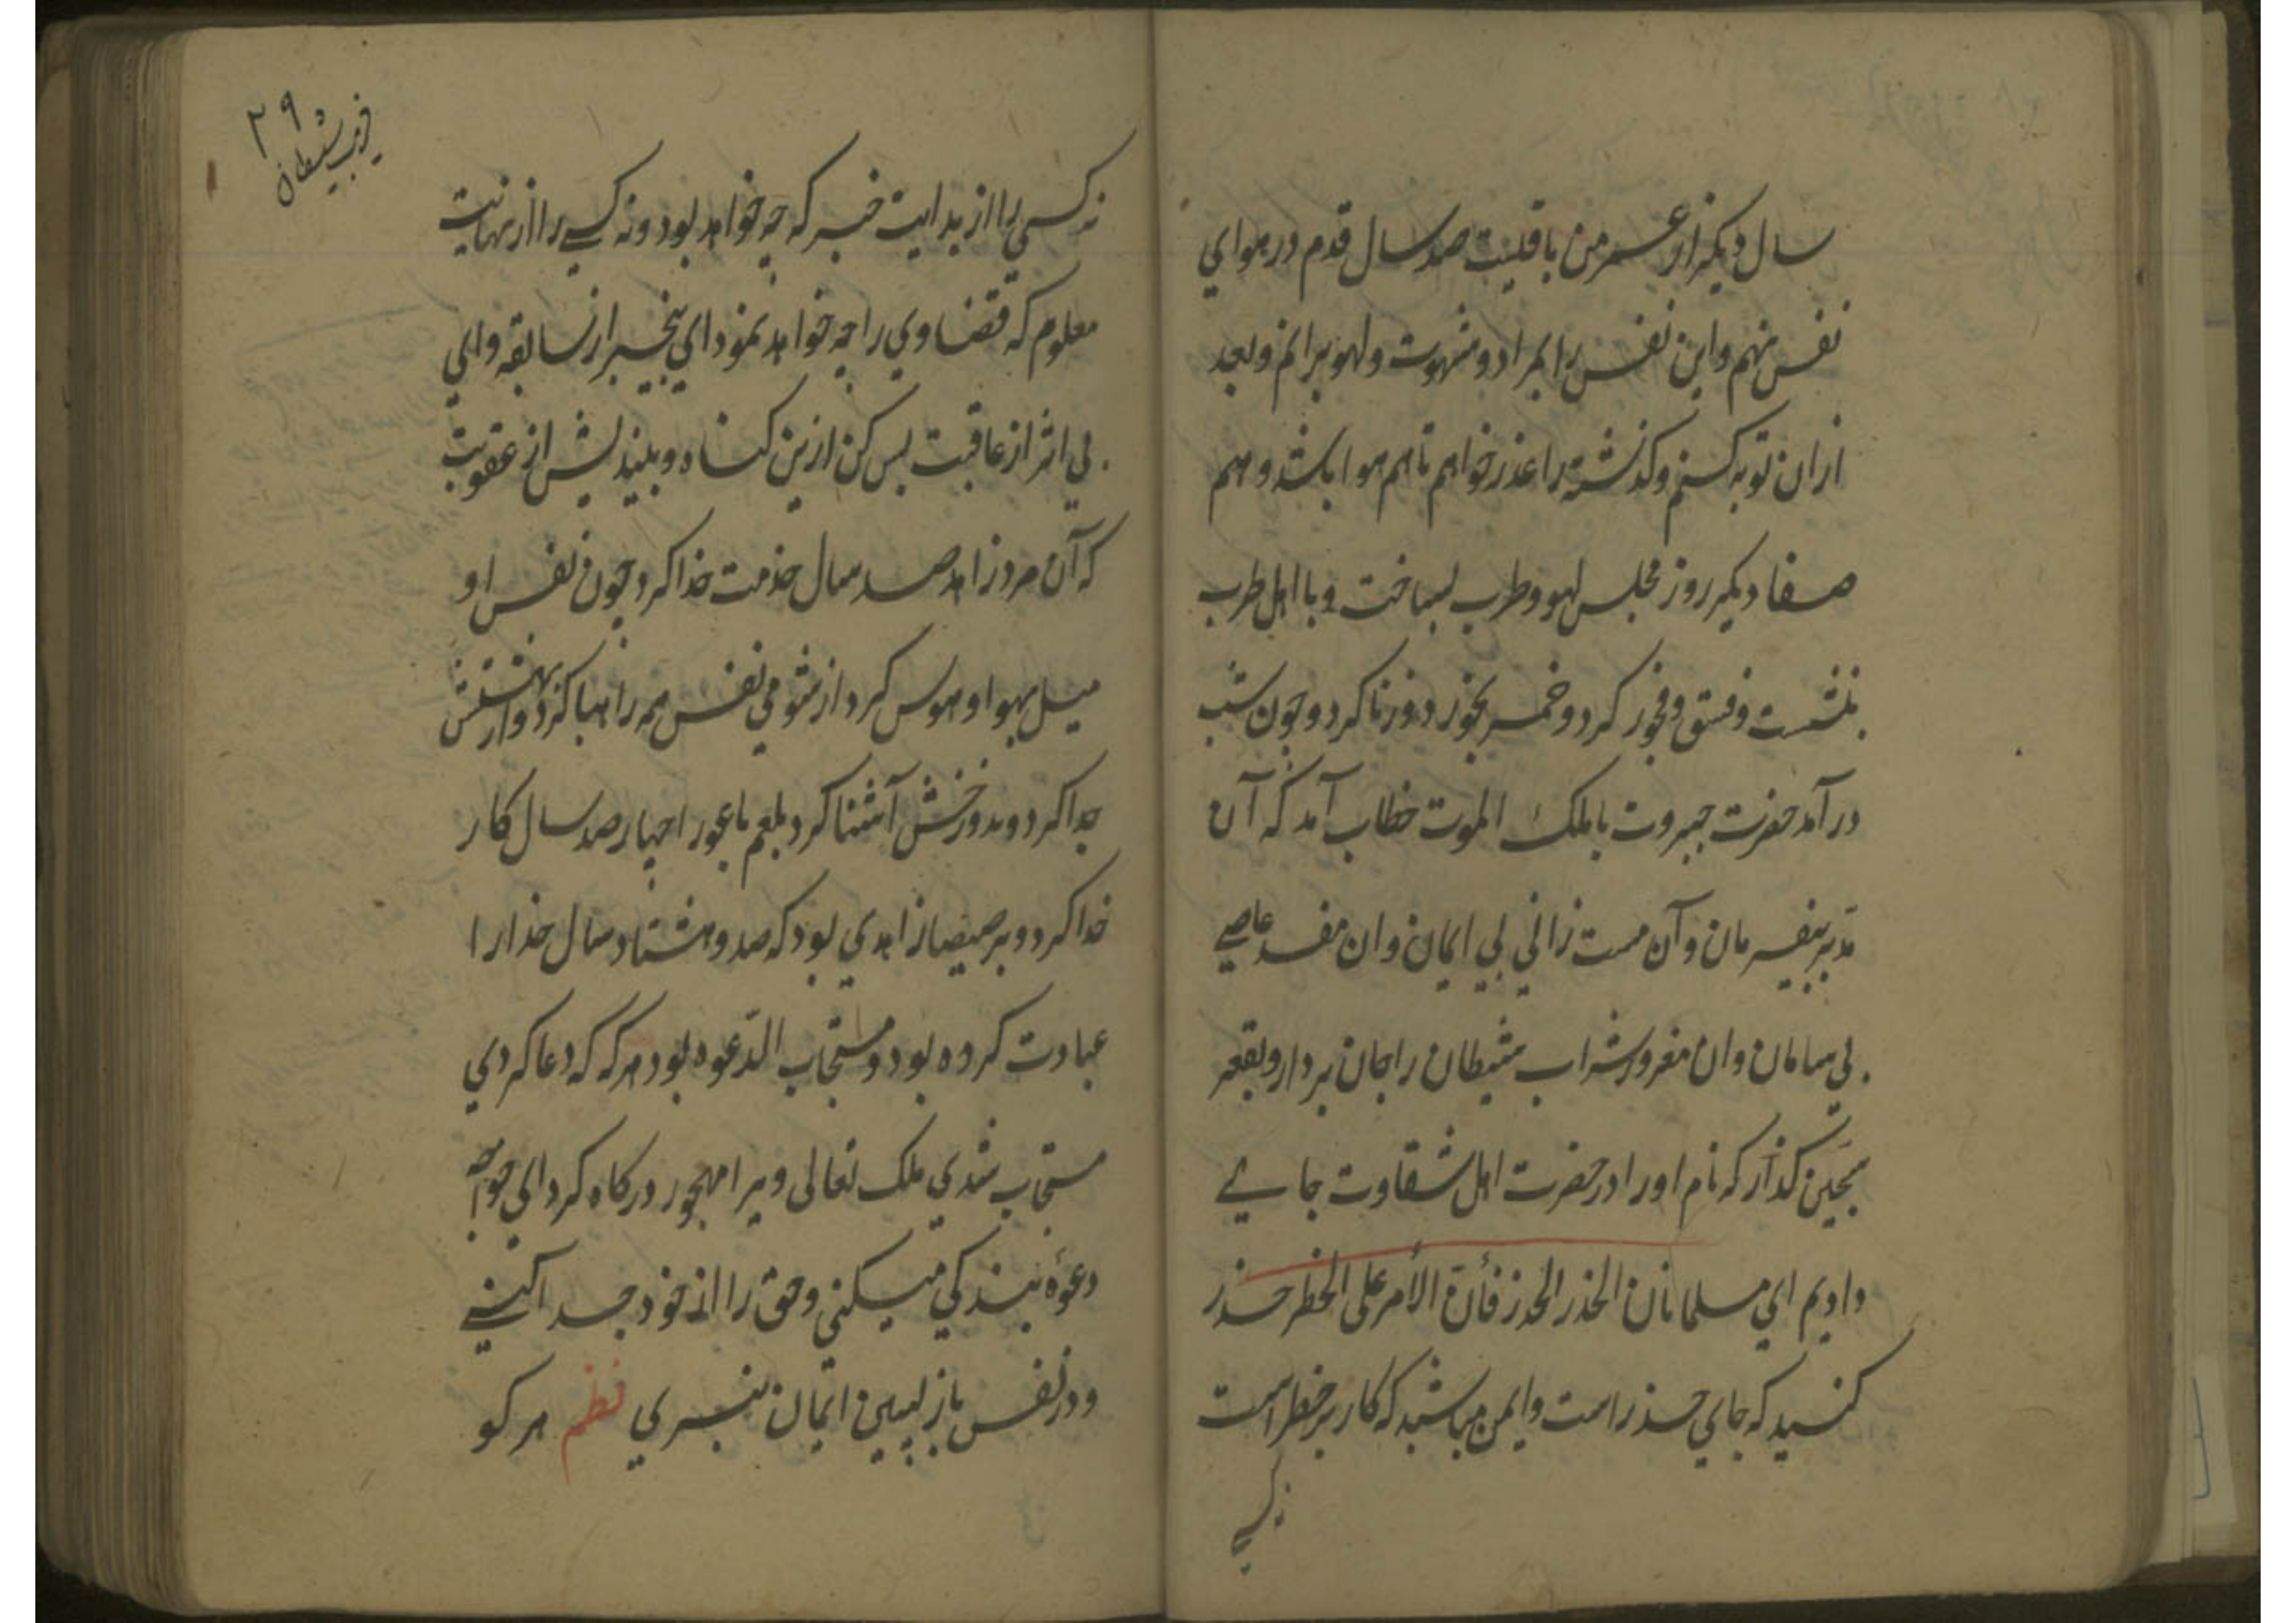 سال دیکر از عمر من باقیست صد سال قدم در هوای
نفس نهم واین نفس را بمراد و شهوت ولهو برانم وبعد
ازان توبه کنم وکذشته را عذر خواهم تا هم هوا باشد وهم
صفا دیکر روز مجلس لهو وطرب بساخت وبا اهل طرب
بنشست وفسق وفجور کرد وخمر بخورد وزنا کرد وچون شب
در آمد حضرت جبروت با ملک الموت خطاب آمد که آن
مدبر بیفرمان وآن مست زانی بی ایمان وان مفسد عاصی
بی سامان وان مغرور شراب شیطان را جان بردار وبقعر
سجّین کذار که نام او را در حضرت اهل شقاوت جای
دادیم ای مسلمانان الحذر الحذر فأنّ الأمر علی الخطر حذر
کنید که جای حذر است وایمن مباشید که کار بر خطر است
نه کسی
۲۹
فریب شیطان
نه کسی را از بدایت خبر که چه خواهد بود ونه کسی را از نهایت
معلوم که قضا وی را چه خواهد نمود ای بیخبر از سابقه وای
بی اثر از عاقبت بس کن ازین کناه وبیندیش از عقوبت
که آن مرد زاهد صد سال خدمت خدا کرد چون نفس او
میل بهوا وهوس کرد از شومی نفس همه را هبا کرد واز بهشتش
جدا کرد وبدوزخش آشنا کرد بلعم باعور اچهار صد سال کار
خدا کرد وبرصیصا زاهدی بود که صد وهشتاد سال خدا را
عبادت کرده بود ومستجاب الدّعوه بود هرکه که دعا کردی
مستجاب شدی ملک تعالی ویرا مهجور درکاه کرد ای خواجه
دعوهٔ بندکی میکنی وحق را از خود جدا کنی
ودر نفس باز پسین ایمان نبری نظم هر کو